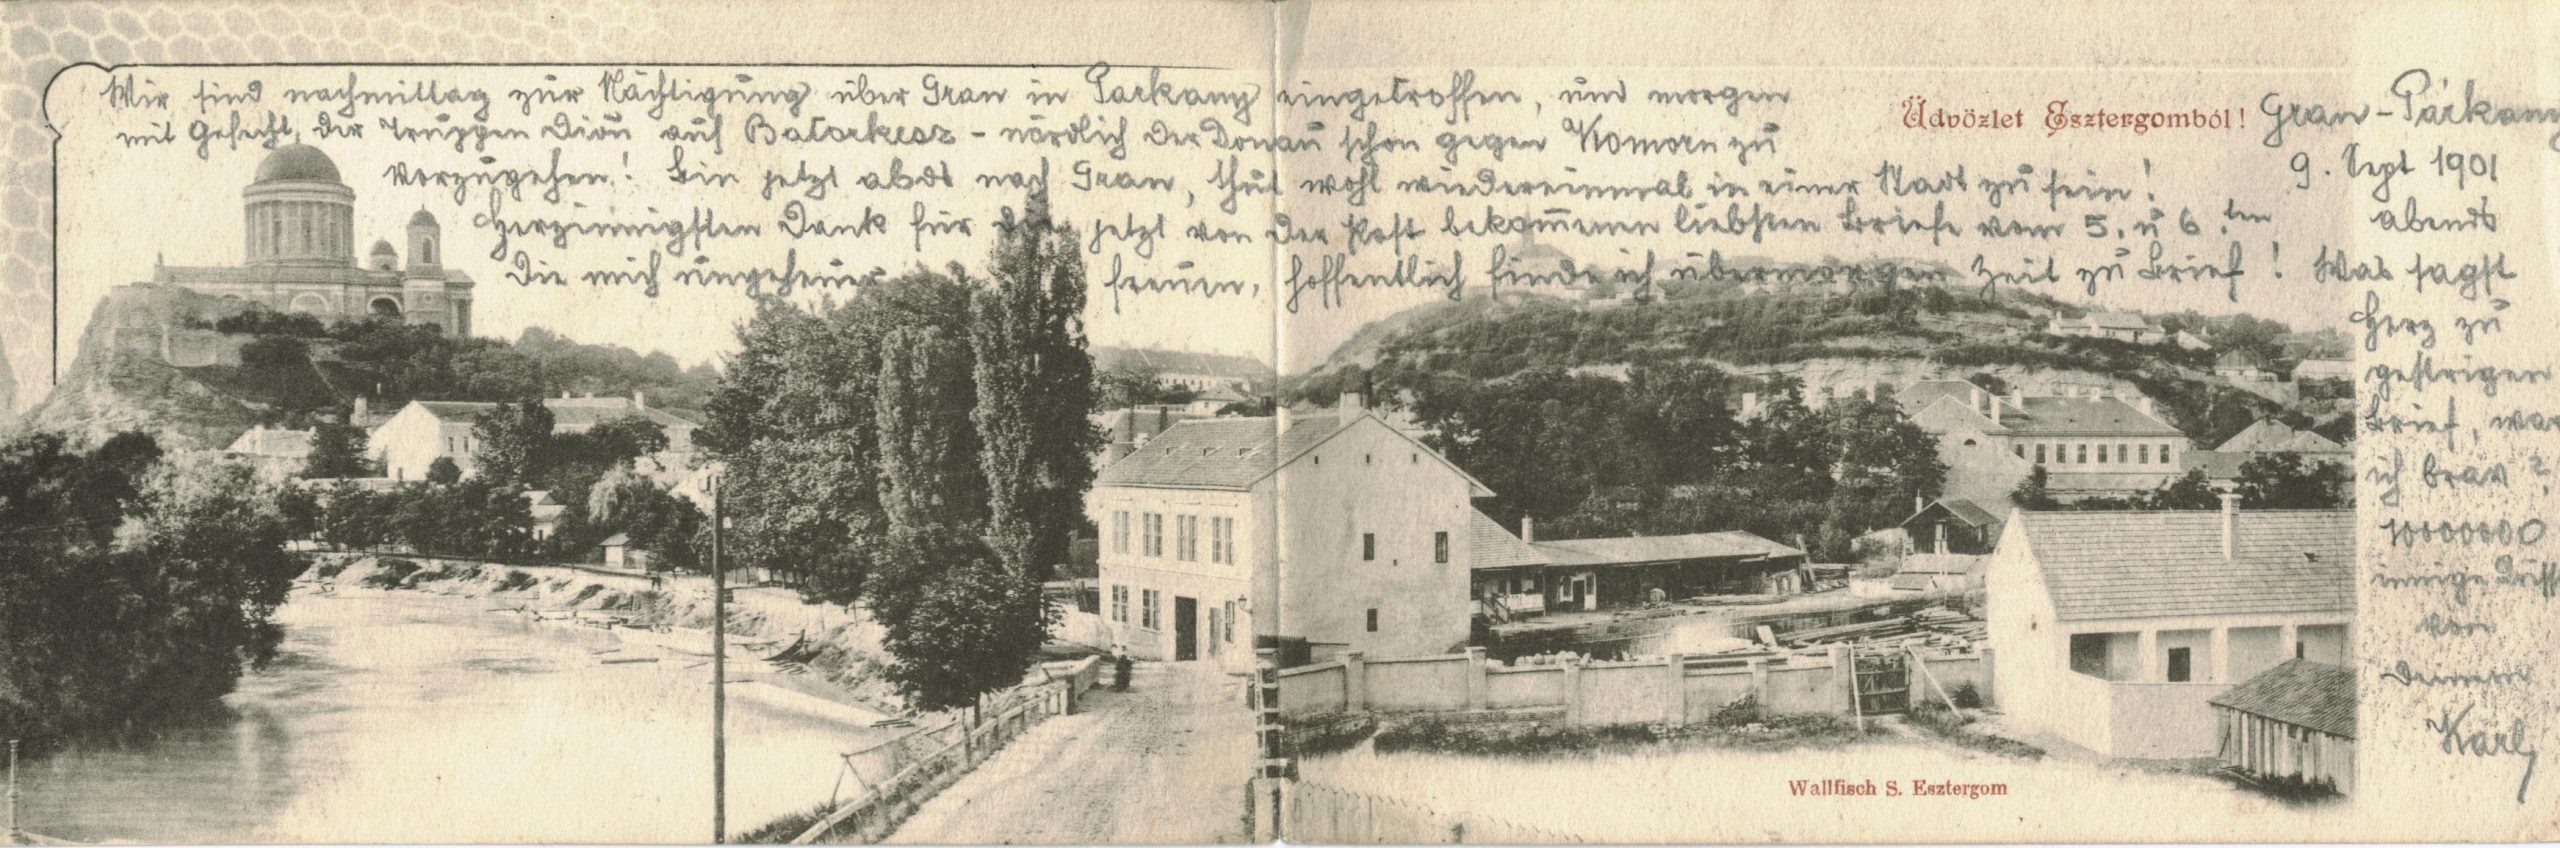 Wir sind nachmittag zur Nächtigung über Gran in Parkany eingetroffen, und morgen
mit Gefecht, der Truppen Dion auf Batorkesz - nördlich der Donau schon gegen Komorn zu
vorzugehen! Bin jetzt abds nach Gran, thut wohl wiedereinmal in einer Stadt zu sein!
Herzinnigsten Dank für die jetzt von der Post bekom̅enen liebsten Briefe vom 5. u 6.ten
die mich ungeheuer freuen, hoffentlich finde ich übermorgen Zeit zu Brief!
Üdvözlet Esztergomból!
Gran-Párkany
9. Sept 1901
abends
Was sagst
Herz zu
gestrigen
Brief, war
ich brav?
10000000
innige
von
Deinem
Karl
Wallfisch S. Esztergom